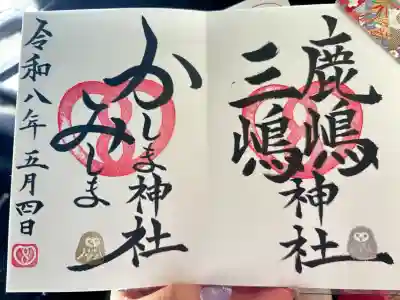 鹿嶋
三嶋
神社
かしま
みしま
神社
令和八年五月四日